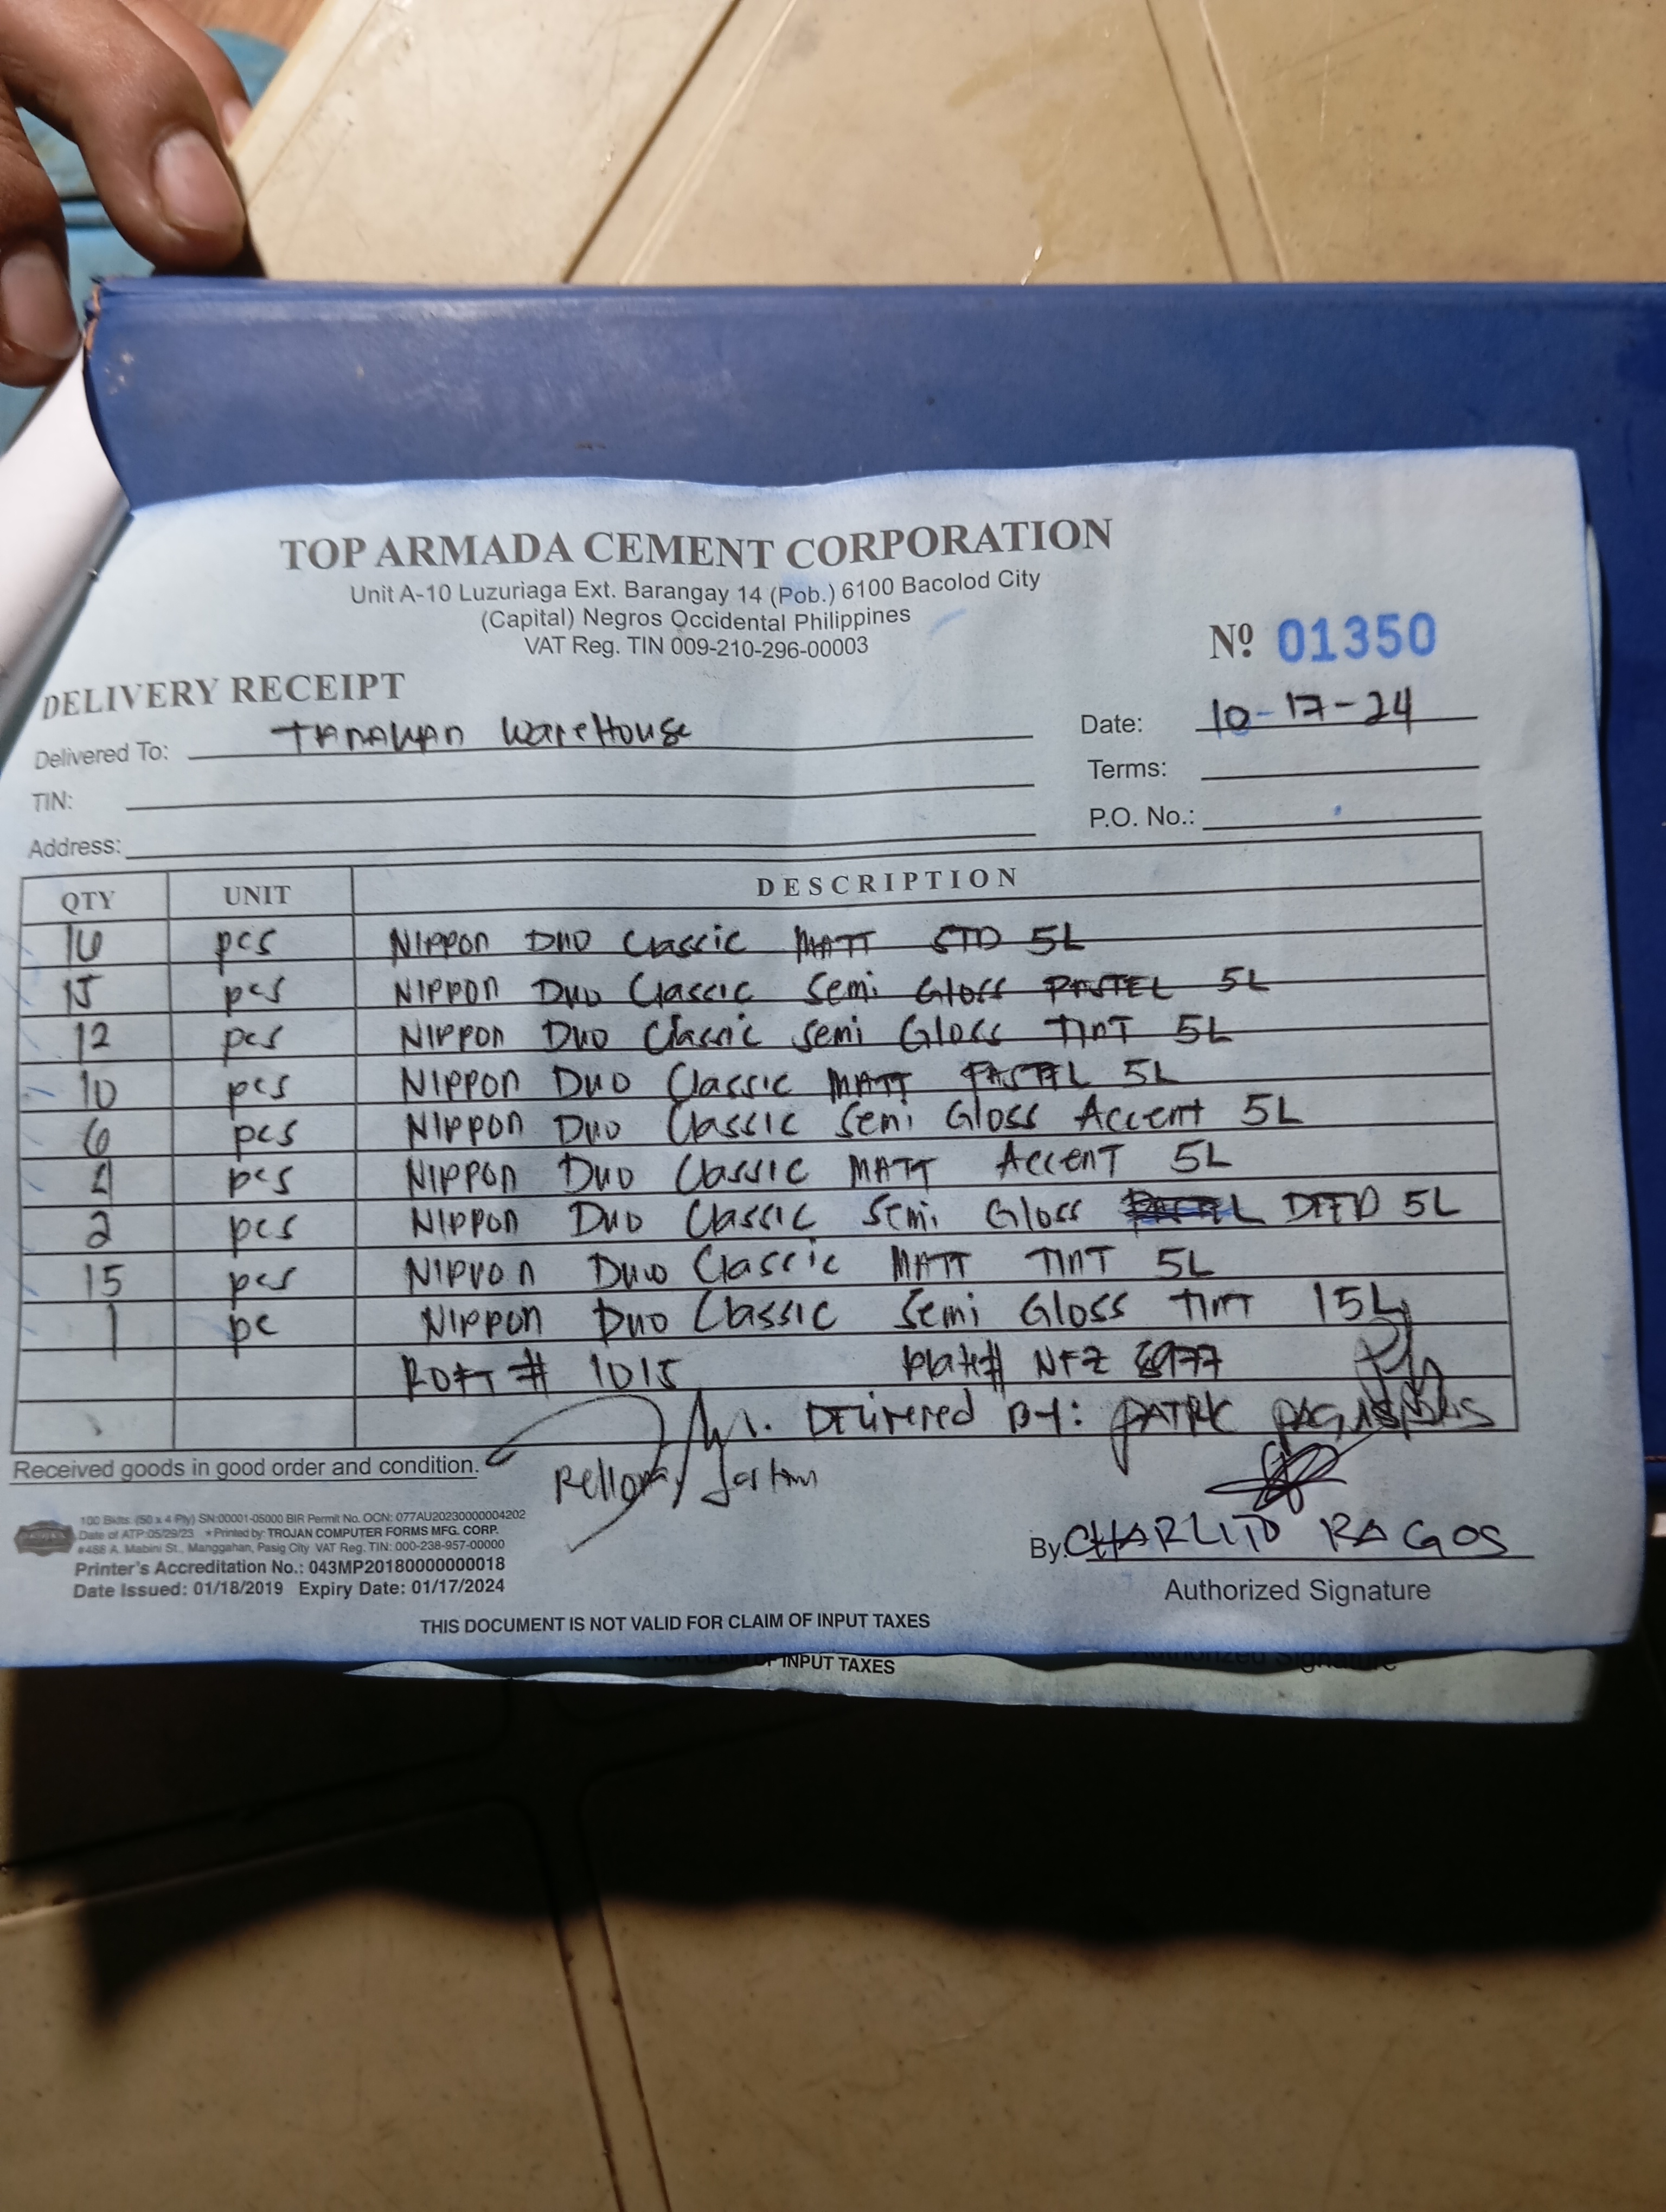 TOP ARMADA CEMENT CORPORATION
Unit A-10 Luzuriaga Ext. Barangay 14 (Pob.) 6100 Bacolod City
(Capital) Negros Occidental Philippines
VAT Reg. TIN 009-210-296-00003
Nº 01350
DELIVERY RECEIPT
Delivered To: TANAUAN WareHouse
Date: 10-17-24
TIN:
Terms:
Address:
P.O. No.:
QTY UNIT DESCRIPTION
16 pcs NIPPON DUO Classic MATT STD 5L
15 pcs NIPPON DUO Classic Semi Gloss PASTEL 5L
12 pcs NIPPON DUO Classic Semi Gloss TINT 5L
10 pcs NIPPON DUO Classic MATT PASTEL 5L
6 pcs NIPPON DUO Classic Semi Gloss Accent 5L
4 pcs NIPPON DUO Classic MATT Accent 5L
2 pcs NIPPON DUO Classic Semi Gloss 5L
15 pcs NIPPON DUO Classic MATT TINT 5L
1 pc NIPPON DUO Classic Semi Gloss TINT 15L
# 1015 Plate# NFZ
Delivered BY:
Received goods in good order and condition.
100 Bklts. (50 x 4 Ply) SN:00001-05000 BIR Permit No. OCN: 077AU20230000004202
Date of ATP:05/29/23 *Printed by: TROJAN COMPUTER FORMS MFG. CORP.
#488 A. Mabini St., Manggahan, Pasig City VAT Reg. TIN: 000-238-957-00000
Printer's Accreditation No.: 043MP20180000000018
Date Issued: 01/18/2019 Expiry Date: 01/17/2024
By: CHARLITO RAGOS
Authorized Signature
THIS DOCUMENT IS NOT VALID FOR CLAIM OF INPUT TAXES
INPUT TAXES
Authorized Signature